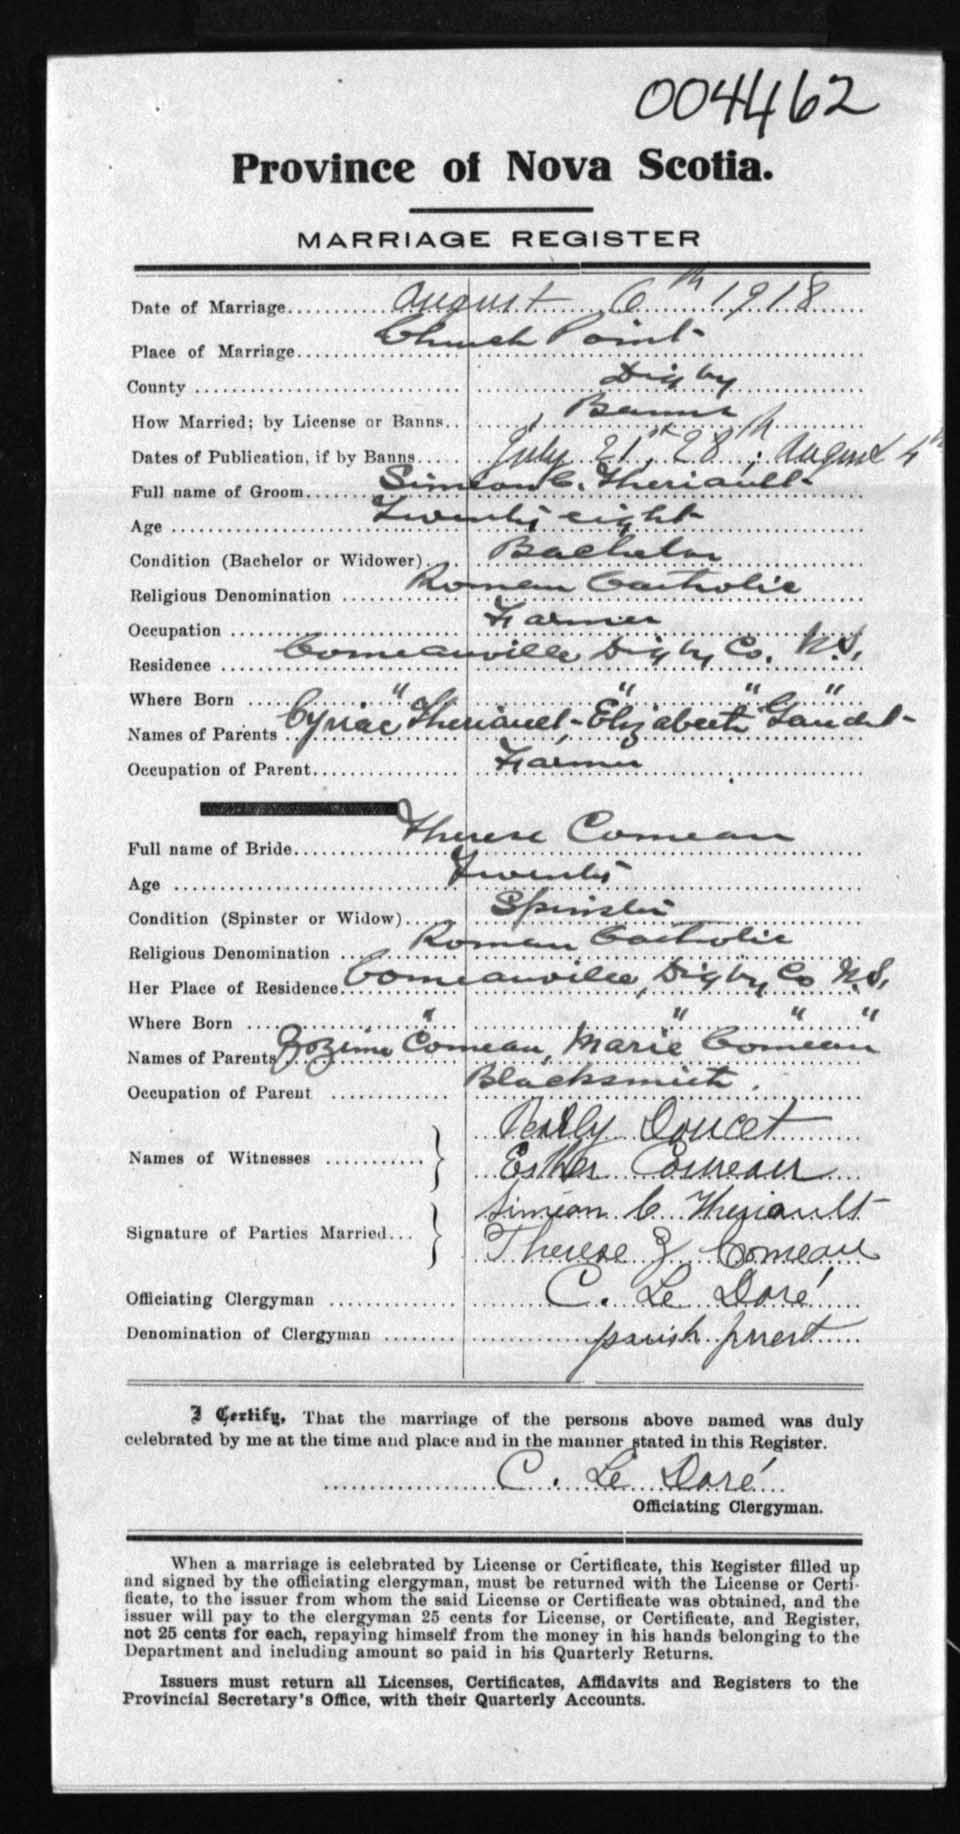 004462
Province of Nova Scotia.
MARRIAGE REGISTER
Date of Marriage August 6th 1918
Place of Marriage Church Point
County Digby
How Married; by License or Banns Banns
Dates of Publication, if by Banns July 21st, 28th, August 4th
Full name of Groom Simeon C. Theriault
Age Twenty eight
Condition (Bachelor or Widower) Bachelor
Religious Denomination Roman Catholic
Occupation Farmer
Residence Comeauville Digby Co. N.S.
Where Born " " " "
Names of Parents Cyriac Theriault, Elizabeth
Occupation of Parent Farmer
Full name of Bride Therese Comeau
Age Twenty
Condition (Spinster or Widow) Spinster
Religious Denomination Roman Catholic
Her Place of Residence Comeauville, Digby Co N.S.
Where Born " " " "
Names of Parents Zozime Comeau, Marie Comeau
Occupation of Parent Blacksmith.
Names of Witnesses Doucet
Esther Comeau
Signature of Parties Married Simeon C. Theriault
Therese Z Comeau
Officiating Clergyman C. Le Doré
Denomination of Clergyman parish priest
I Certify, That the marriage of the persons above named was duly
celebrated by me at the time and place and in the manner stated in this Register.
C. Le Doré
Officiating Clergyman.
When a marriage is celebrated by License or Certificate, this Register filled up
and signed by the officiating clergyman, must be returned with the License or Certi-
ficate, to the issuer from whom the said License or Certificate was obtained, and the
issuer will pay to the clergyman 25 cents for License, or Certificate, and Register,
not 25 cents for each, repaying himself from the money in his hands belonging to the
Department and including amount so paid in his Quarterly Returns.
Issuers must return all Licenses, Certificates, Affidavits and Registers to the
Provincial Secretary's Office, with their Quarterly Accounts.